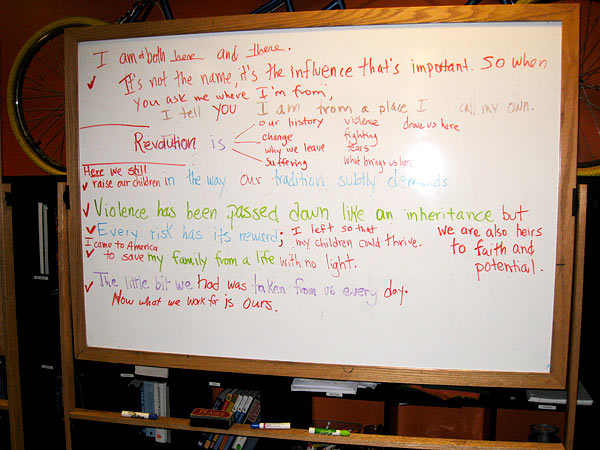 I am of both here and there.
It's not the name, it's the influence that's important. So when
you ask me where I'm from,
I tell you I am from a place I call my own.
Revolution is
our history violence drove us here
change fighting
why we leave tears
suffering what brings us here
Here we still
raise our children in the way our tradition subtly demands.
Violence has been passed down like an inheritance but
we are also heirs
to faith and
potential.
Every risk has its reward; I left so that
my children could thrive.
I came to America
to save my family from a life with no light.
The little bit we had was taken from us every day.
Now what we work for is ours.